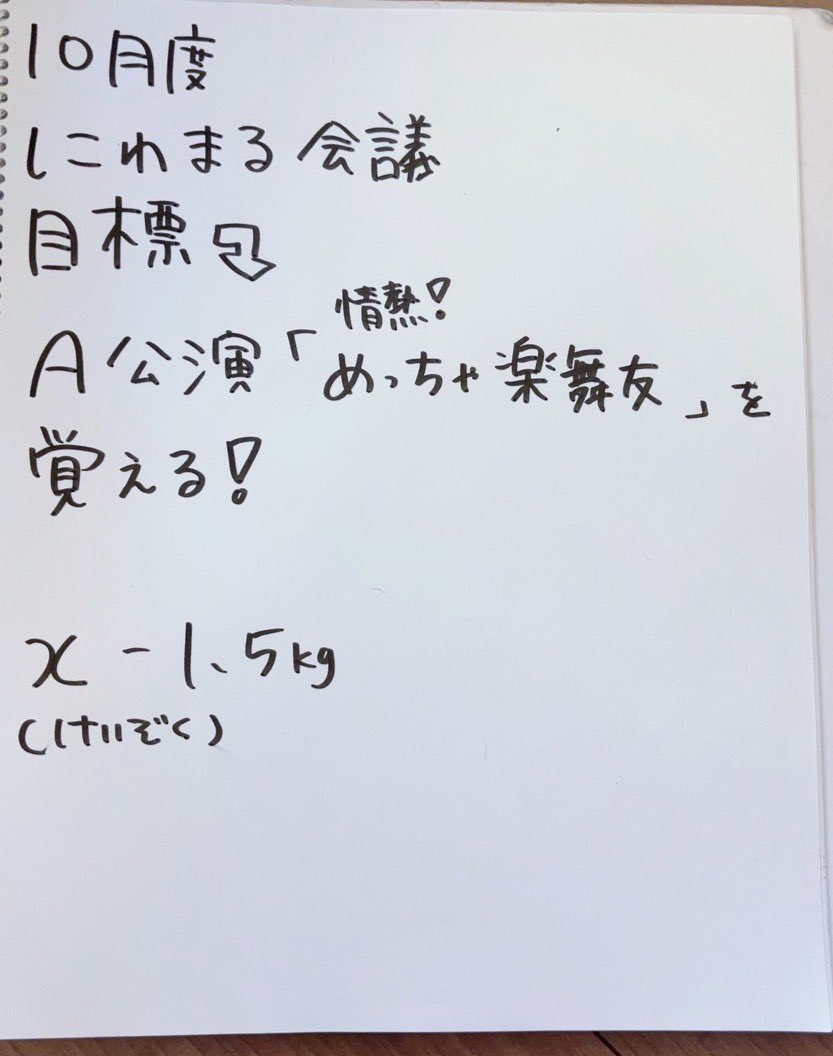 10月度
しこわまる会議
目標
情熱!
A公演「めっちゃ楽舞友」を
覚える!
x -1.5kg
(けいぞく)